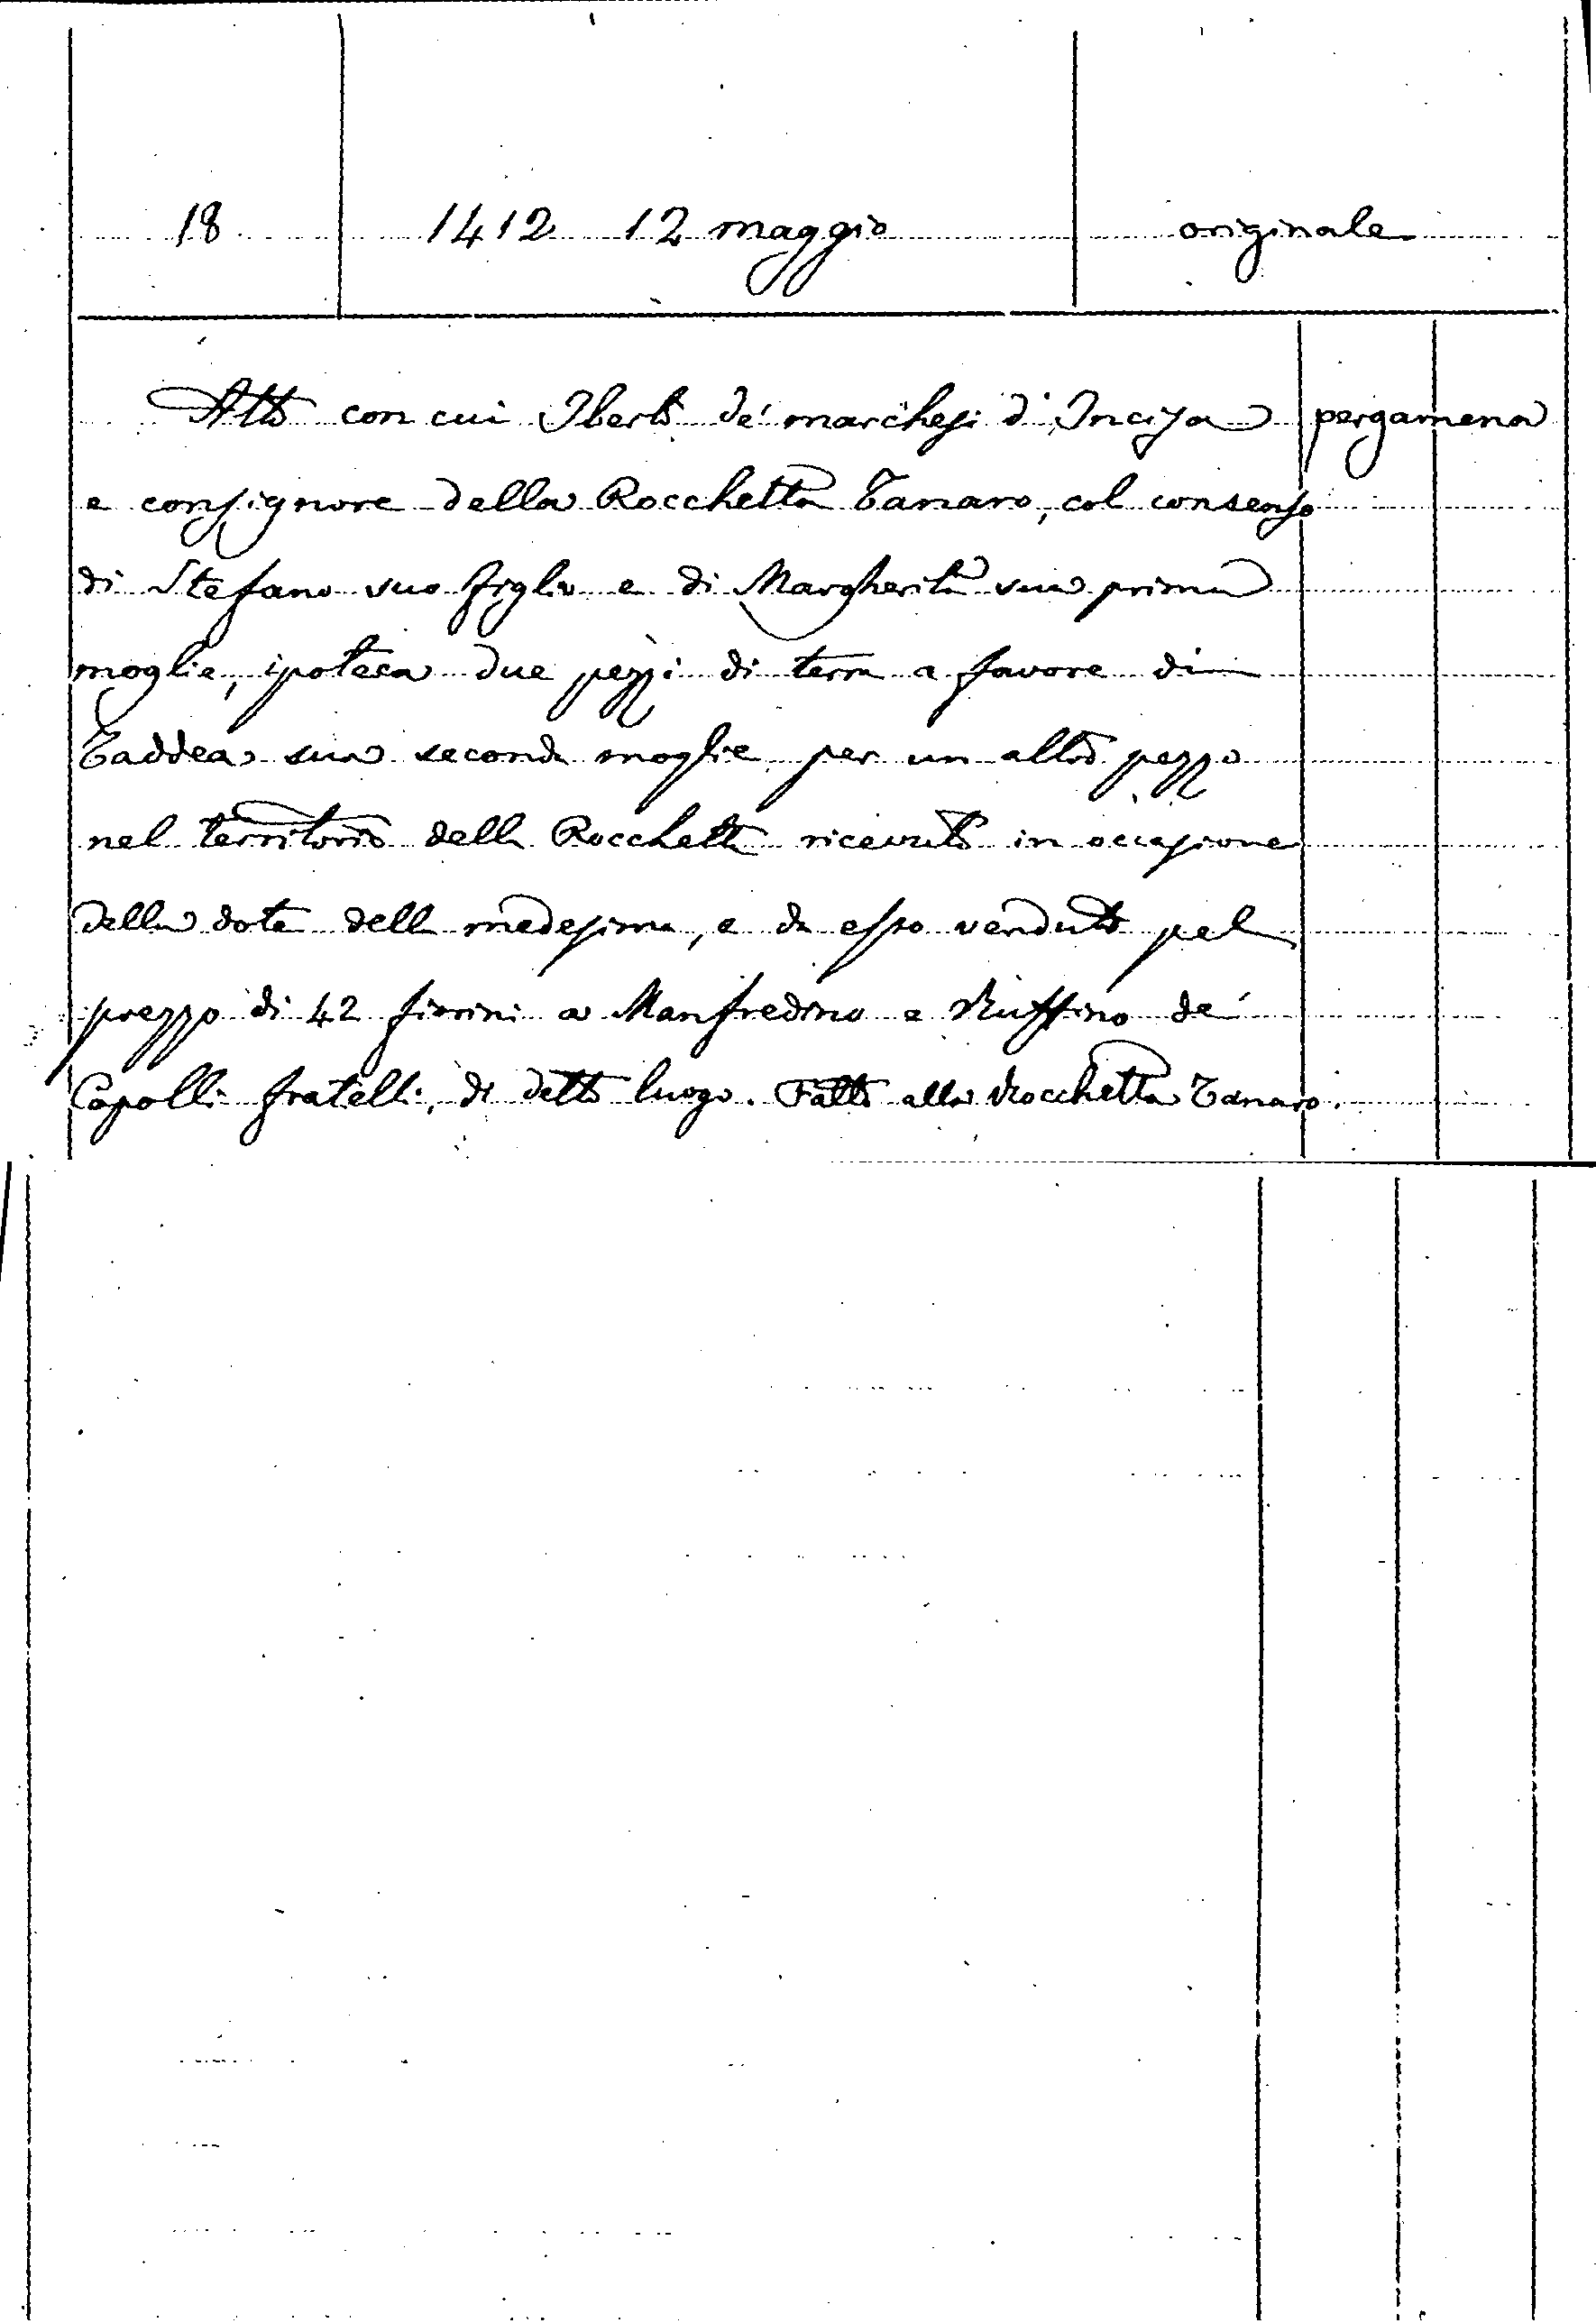 18 1412 12 maggio originale
Atto con cui Iberto de' marchesi d'Incisa pergamena
e consignore della Rocchetta Tanaro, col consenso
di Stefano suo figlio e di Margherita sua prima
moglie, ipoteca due pezzi di terra a favore di
Taddea sua seconda moglie per un altro pezzo
nel territorio della Rocchetta ricevuto in occasione
della dote della medesima, e da esso venduto pel
prezzo di 42 fiorini a Manfredino e Ruffino de'
Capolli fratelli, di detto luogo. Fatto alla Rocchetta Tanaro.